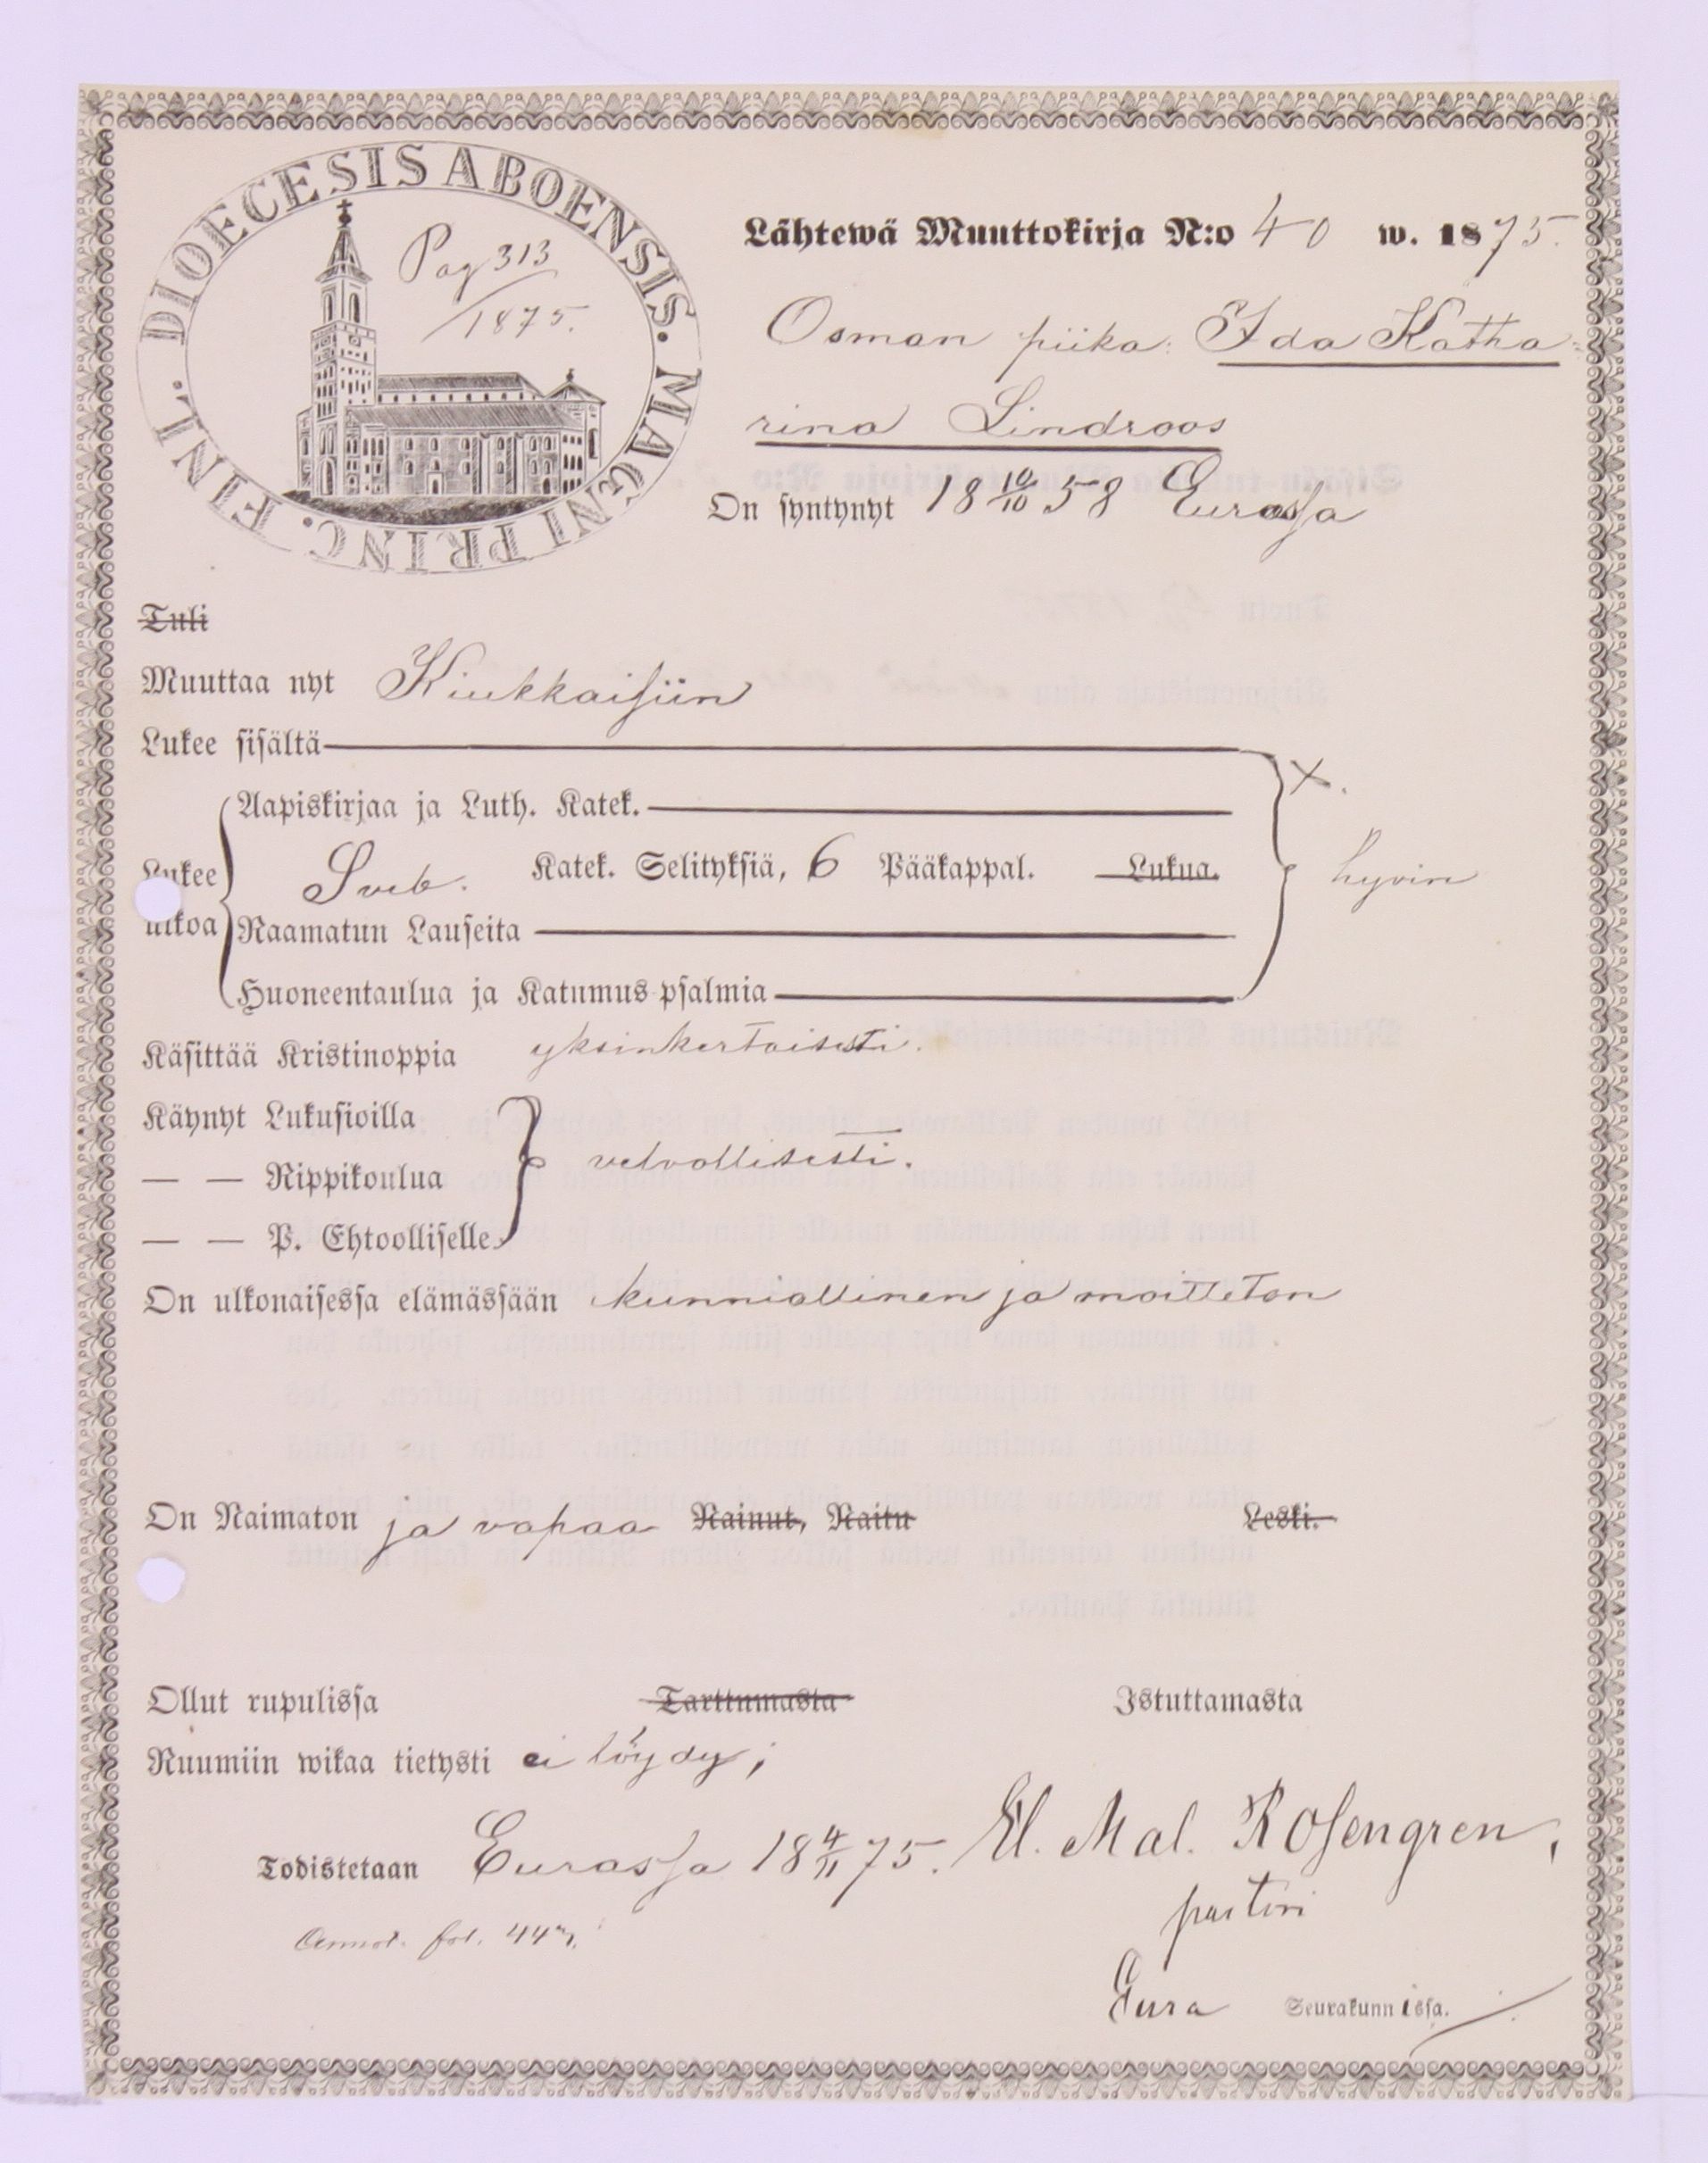 DIOECESIS ABOENSIS. MAGNI PRINC. FINL.
Pag 313
1875.
Lähtewä Muuttokirja N:o 40 w. 1875.
Osman piika: Ida Katha=
rina Lindroos
On syntynyt 18 10/10 58 Eurassa
Tuli
Muuttaa nyt Kiukkaisiin
Lukee sisältä
Aapiskirjaa ja Luth. Katek.
Lukee ulkoa Sveb. Katek. Selityksiä, 6 Pääkappal. Lukua.
X. hyvin
Raamatun Lauseita
Huoneentaulua ja Katumus psalmia
Käsittää Kristinoppia yksinkertaisesti.
Käynyt Lukusioilla
— — Rippikoulua velvollisesti.
— — P. Ehtoolliselle
On ulkonaisessa elämässään kunniallinen ja moitteton
On Naimaton ja vapaa Nainut, Naitu Leski.
Ollut rupulissa Tarttumasta Istuttamasta
Ruumiin wikaa tietysti ei löydy;
Todistetaan Eurassa 18 4/11 75. El. Mal. Rosengren,
pastori
Annot. fol. 44
Eura Seurakunnissa.